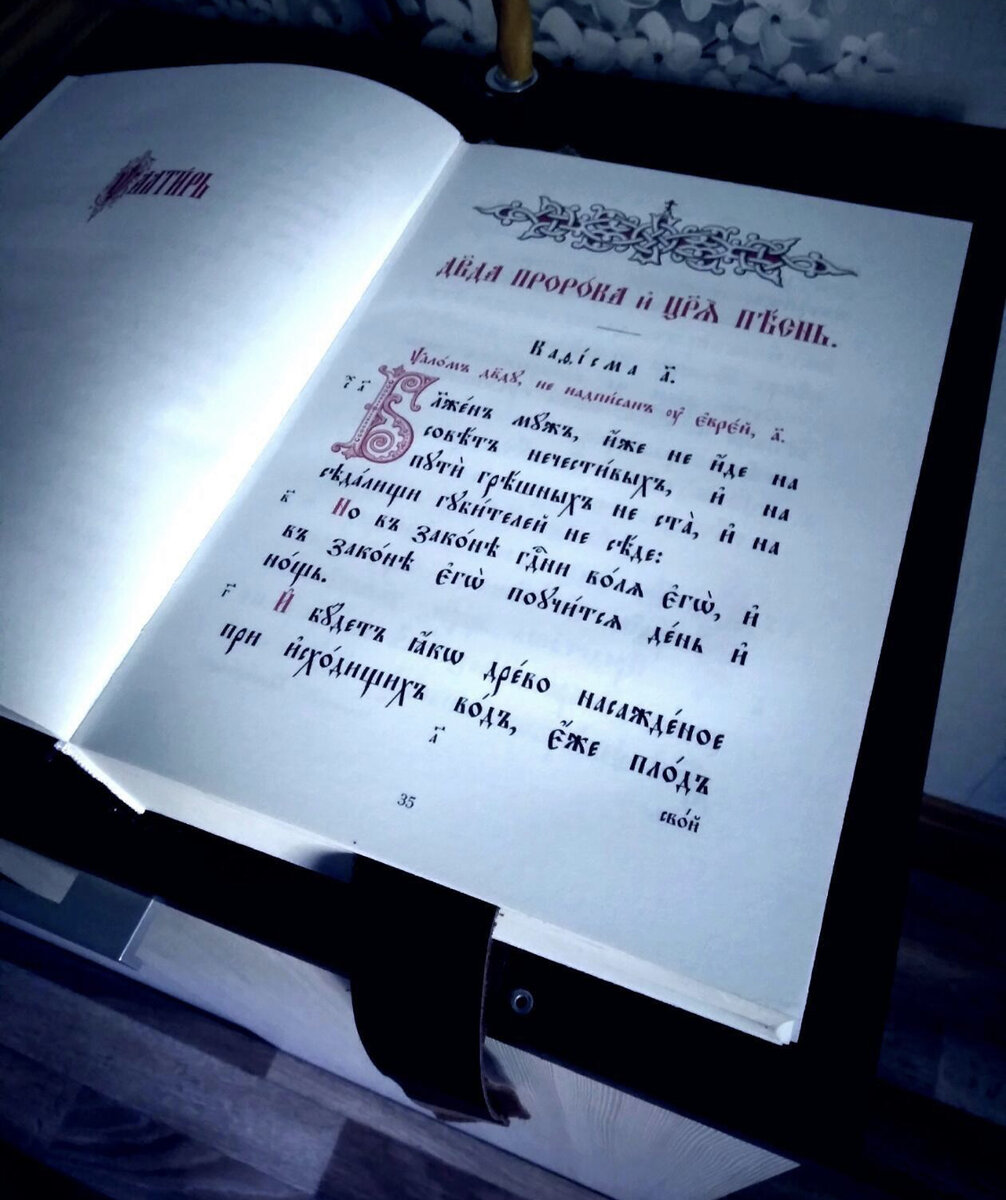 Ѱалти́рь
Дв҃да проро́ка и҆ цр҃ѧ̀ пѣ́снь.
Каѳі́сма а҃.
Ѱало́мъ дв҃ду, не надпи́санъ ᲂу҆ є҆вре́й, а҃.
Бл҃же́нъ мꙋ́жъ, и҆́же не и҆́де на
совѣ́тъ нечести́выхъ, и҆ на
пꙋтѝ грѣ́шныхъ не ста̀, и҆ на
сѣда́лищи гꙋби́телей не сѣ́де:
в҃ Но въ зако́нѣ гдⷭ҇ни во́лѧ є҆гѡ̀, и҆
въ зако́нѣ є҆гѡ̀ поꙋчи́тсѧ де́нь и҆
но́щь.
г҃ И҆ бꙋ́детъ ꙗ҆́кѡ дре́во насажде́ное
при и҆схо́дищихъ во́дъ, є҆́же пло́дъ
сво́й
а҃
35